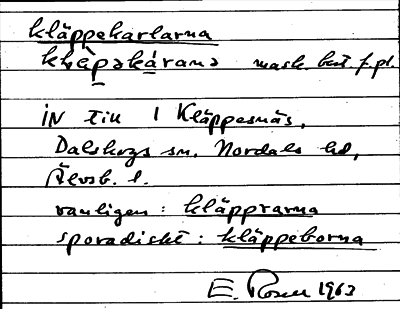 kläppekarlarna
kḷäpəkárana mask. best. f. pl.
IN till 1 Kläppesnäs,
Dalskogs sn. Nordals hd,
Älvsb. l.
vanligen: kläpprarna
sporadiskt: kläppeborna
E. Rosen 1963